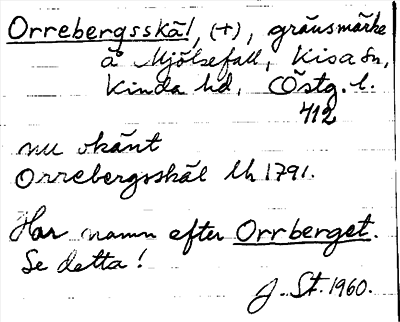 Orrebergsskäl, (+), gränsmärke
å Mjölsefall, Kisa sn,
Kinda hd, Östg. l.
412
nu okänt
Orrebergsskäl Lh 1791.
Har namn efter Orrberget.
Se detta!
J. St. 1960.